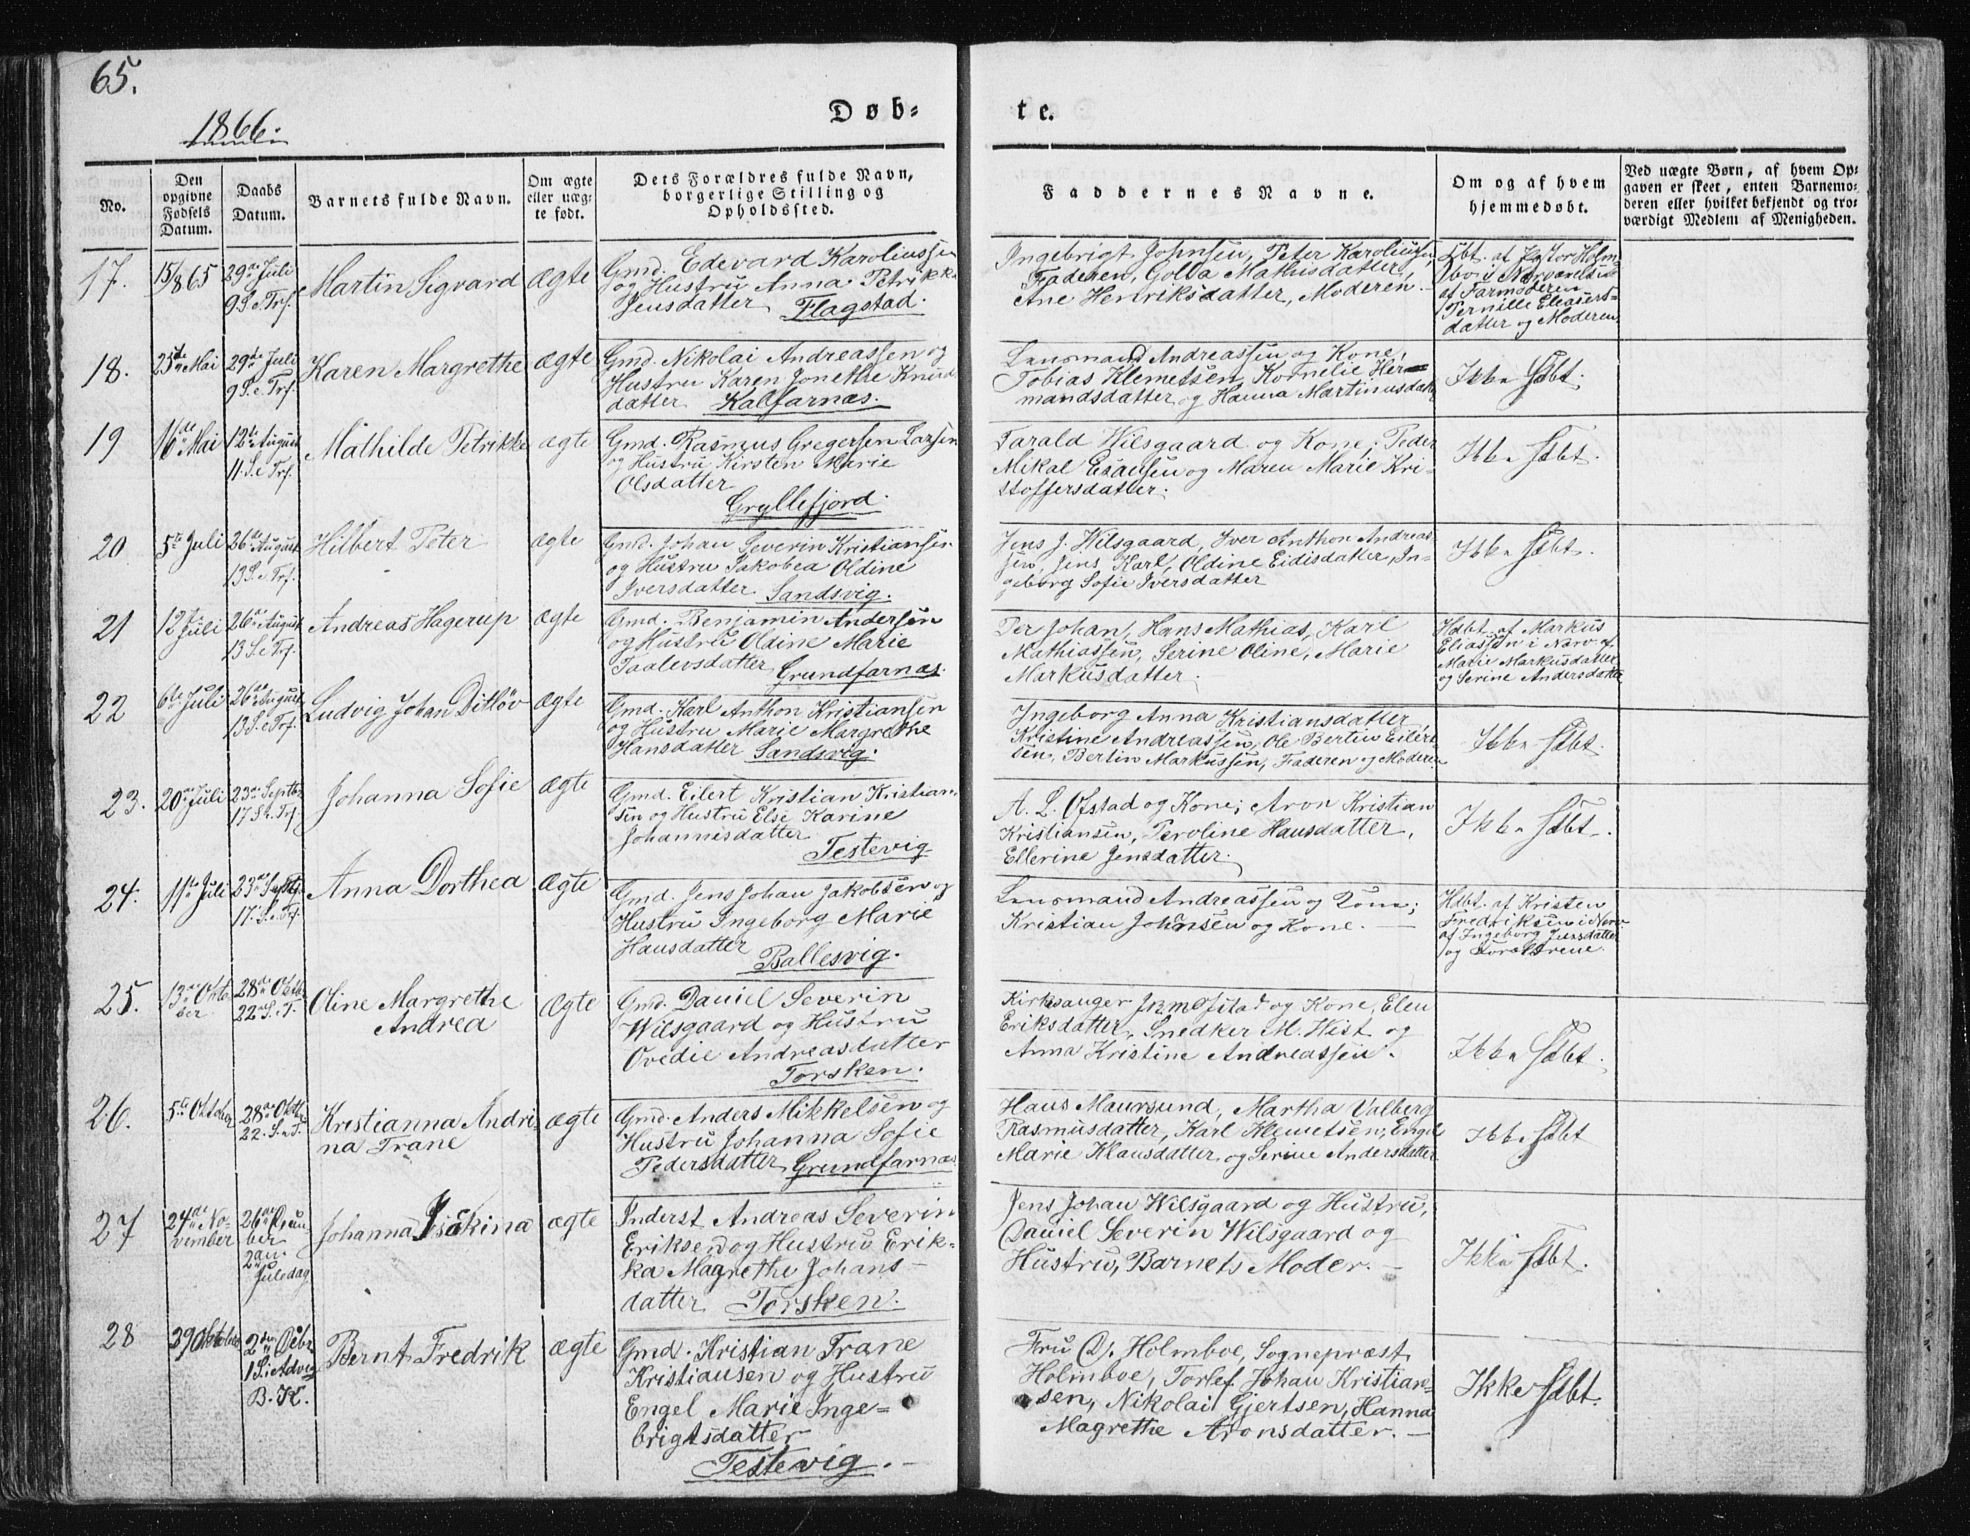 65.
1866.
Døb-
te.
No.
Den opgivne Fødsels Datum.
Daabs Datum.
Barnets fulde Navn.
Om ægte eller uægte født.
Dets Forældres fulde Navn,
borgerlige Stilling og
Opholdssted.
Faddernes Navne.
Om og af hvem
hjemmedøbt.
Ved uægte Børn, af hvem Op-
gaven er skeet, enten Barnemo-
deren eller hvilket bekjendt og tro-
værdigt Medlem af Menigheden.
17.
29de Juli
9 S. e. Trf.
Martin Sigvard
ægte
Gmd. Edevard Karoliussen
og Hustru Anna Petrikke
Jensdatter Flagstad.
Ingebrigt Johnsen, Peter Karoliusen,
Faderen, Golla Mathisdatter,
Ane Henriksdatter, Moderen.
af Pastor Holm
boe i Nærværelse
af Farmoderen
Pernille Eleasers-
datter og Moderen
18.
25de Mai
29de Juli
9 S. e. Trf.
Karen Margrethe
ægte
Gmd. Nikolai Andreassen og
Hustru Karen Jonethe Knud
datter Kalfarnæs.
Lensmand Andreassen og Kone,
Tobias Klemetsen, Kornelie Her-
mandsdatter og Hanna Martinusdatter
Ikke Hdbt.
19
16de Mai
12te August
11 S. e. Trf.
Mathilde Petrikke
ægte
Gmd. Rasmus Gregersen Larsen
og Hustru Kirsten Marie
Olsdatter
Gryllefjord.
Tarald Wilsgaard og Kone; Peder
Mikal Esaiesen og Maren Marie Kri-
stoffersdatter.
Ikke Hdbt.
20
5te Juli
26de August
13 S. e. Trf.
Hilbert Peter
ægte
Gmd. Johan Severin Kristiansen
og Hustru Jakobea Oldine
Iversdatter Sandsvig.
Jens J. Wilsgaard, Iver Anthon Andreas-
sen, Jens Karl, Oldine Eidisdatter, In-
geborg Sofie Iversdatter
Ikke Hdbt.
21
12te Juli
26de August
13 S. e. Trf.
Andreas Hagerup
ægte
Gmd. Benjamin Andersen
og Hustru Oldine Marie
Taalevsdatter Grundfarnæs.
Per Johan, Hans Mathias, Karl
Mathiassen, Serine Oline, Marie
Markusdatter.
Hdbt. af Markus
Eliassen i Nærv. af
Marie Markusdatter
og Serine Andersdatter
22
6te Juli
26de August
13 S. e. Trf.
Ludvig Johan Ditløv
ægte
Gmd. Karl Anthon Kristiansen
og Hustru Marie Margrethe
Hansdatter Sandsvig.
Ingeborg Anna Kristiansdatter,
Kristine Andreassen, Ole Bertin Eilert-
sen, Bertin Markussen, Faderen og Moderen
Ikke Hdbt.
23.
20de Juli
23de Septb.
17 S. e. Trf.
Johanna Sofie
ægte
Gmd. Eilert Kristian Kristian-
sen og Hustru Else Karine
Johannisdatter
Testevig
A. L. Ofstad og Kone; Aron Kristian
Kristiansen, Peroline Hansdatter,
Ellerine Jensdatter.
Ikke Hdbt.
24.
11te Juli
23de Septb.
17. S. e. Trf.
Anna Dorthea
ægte
Gmd. Jens Johan Jakobsen og
Hustru Ingeborg Marie
Hansdatter
Ballesvig.
Lensmand Andreassen og Kone;
Kristian Johnsen og Kone.
Hdbt. af Kristen
Fredriksen i Nærv.
af Ingeborg Jensdatter
og Forældrene.
25.
13de Okto-
ber
28de Oktb.
22 S. e. T.
Oline Margrethe
Andrea
Ægte
Gmd. Daniel Severin
Wilsgaard og Hustru
Ovedie Andreasdatter
Torsken.
Kirkesanger Ofstad og Kone, Elen
Eriksdatter, Snedker M. Wist og
Anna Kristine Andreassen.
Ikke Hdbt.
26.
5te Oktober
28de Oktb.
22. S. e. T.
Kristianna Andri-
na Trane
ægte
Gmd. Anders Mikkelsen og
Hustru Johanna Sofie
Pedersdatter Grundfarnæs
Hans Maursund, Martha Valberg
Rasmusdatter, Karl Klemetsen, Engel
Marie Klausdatter og Serine Andersdatter
Ikke Hdbt
27
24de No-
vember
26de Decem-
ber
2den
Juledag
Johanna Jsakina
ægte
Inderst Andreas Severin
Eriksen og Hustru Erik-
ka Magrethe Johans-
datter Torsken.
Jens Johan Wilsgaard og Hustru,
Daniel Severin Wilsgaard og
Hustru, Barnets Moder.
Ikke Hdbt.
28
29 Oktober
2den Debr.
1 S. i Adv.
B. K.
Bernt Fredrik
ægte
Gmd. Kristian Trane
Kristiansen og Hustru
Engel Marie Inge-
brigtsdatter
Testevig.
Fru D. Holmboe, Sogneprest
Holmboe, Torlef Johan Kristian-
sen, Nikolai Gjertsen, Hanna
Magrethe Aronsdatter.
Ikke Hdbt.